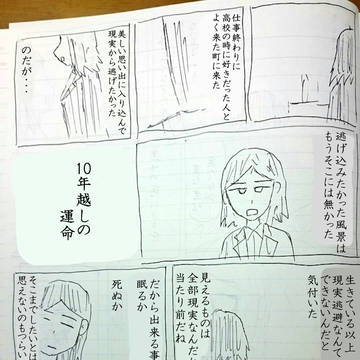 仕事終わりに
高校の時に好きだった人と
よく来た町に来た
美しい思い出に入り込んで
現実から逃げたかった
のだが・・・
逃げ込みたかった風景は
もうそこには無かった
10年越しの
運命
生きている以上
現実逃避なんて
できないんだと
気付いた
見えるものは
全部現実なんだ
当たり前だね
だから出来る事
眠るか
死ぬか
そこまでしたいとは
思えないのもつらい